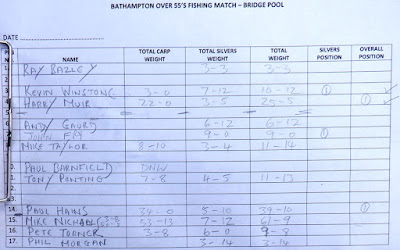 BATHAMPTON OVER 55'S FISHING MATCH – BRIDGE POOL
DATE
NAME TOTAL CARP WEIGHT TOTAL SILVERS WEIGHT TOTAL WEIGHT SILVERS POSITION OVERALL POSITION
1. RAY BAZLEY 3-3 3-3
3. KEVIN WINSTONE 3-0 7-12 10-12 ①
4. HARRY MUIR 22-0 3-5 25-5
6. ANDY GAURD 6-12 6-12
JOHN FRY 9-0 9-0 ①
MIKE TAYLOR 8-10 3-4 11-14
PAUL BARNFIELD DNW
TONY PONTING 7-8 4-5 11-13
14. PAUL HAINS 34-0 5-10 39-10 ①
15. MIKE NICHOLLS 53-13 7-12 61-9
16. PETE TURNER 3-8 6-0 9-8
17. PHIL MORGAN 3-14 3-14